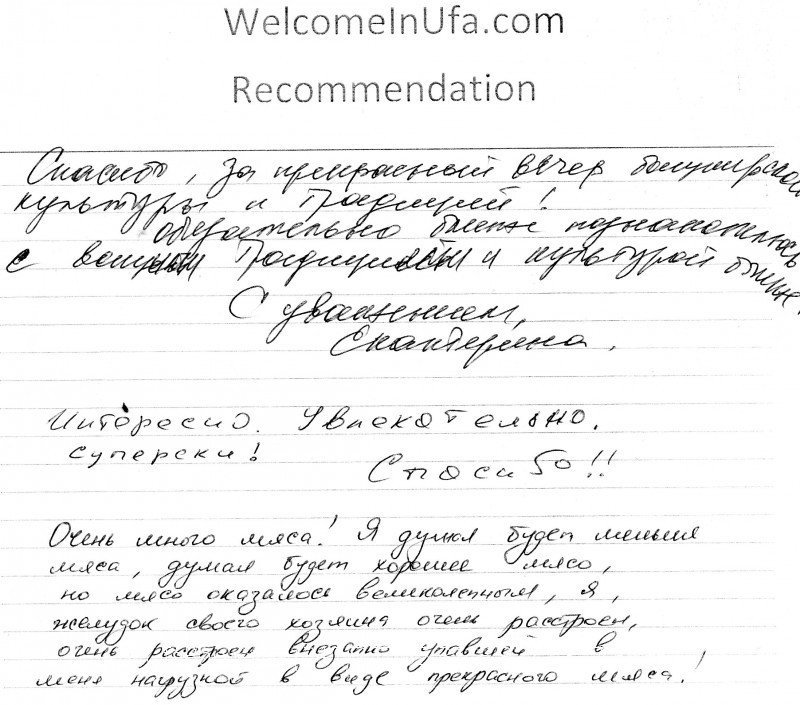 WelcomeInUfa.com
Recommendation
Спасибо, за прекрасный вечер башкирской
культуры и традиций!
обязательно ближе познакомлюсь
с вашими традициями и культурой ближе.
С уважением,
Екатерина.
Интересно. Увлекательно.
Суперски!
Спасибо!!
Очень много мяса! Я думал будет меньше
мяса, думал будет хорошее мясо,
но мясо оказалось великолепным, я,
желудок своего хозяина очень расстроен,
очень расстроен внезапно упавшей в
меня нагрузкой в виде прекрасного мяса!